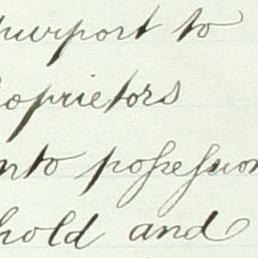 purport to
oprietors
nto possession
hold and